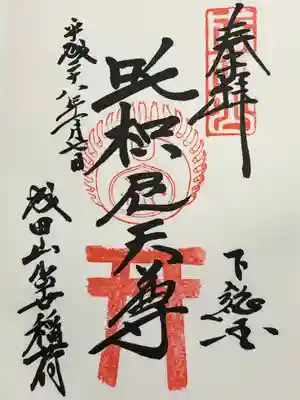 奉拝
下総国
吒枳尼天尊
平成二十八年
成田山出世稲荷